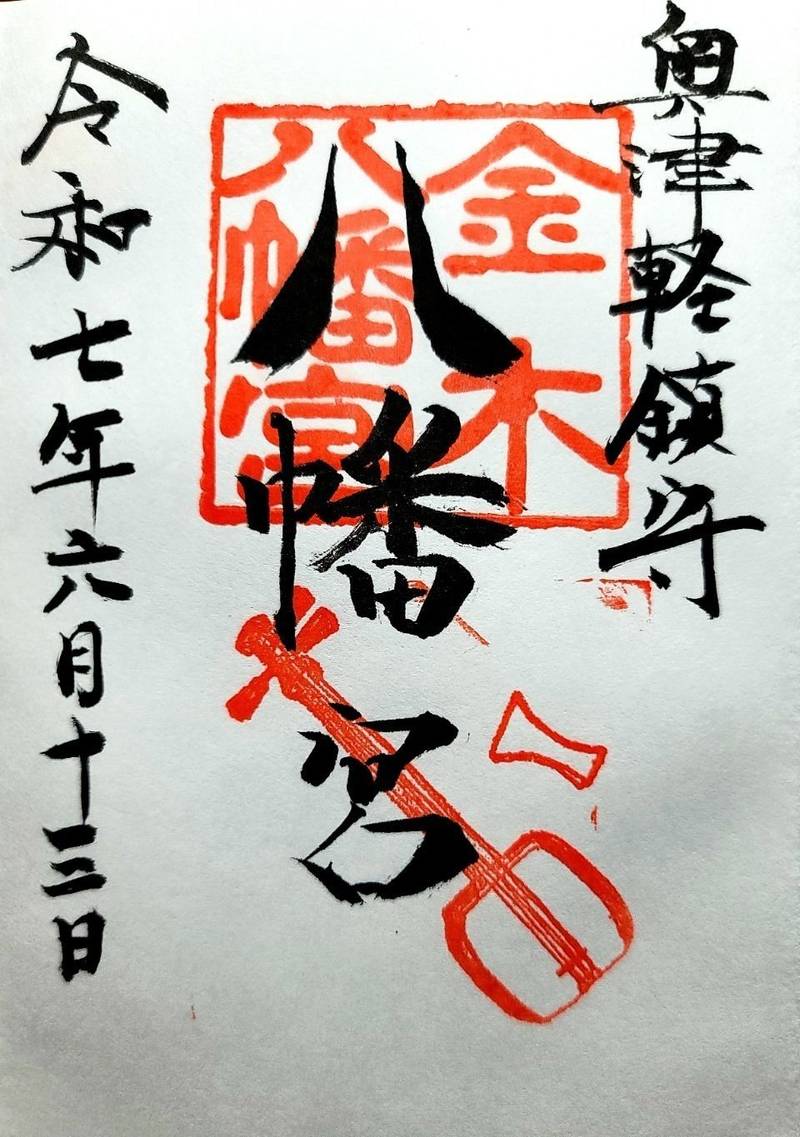 奥津軽鎮守
金木
八幡宮
八幡宮
令和七年六月十三日